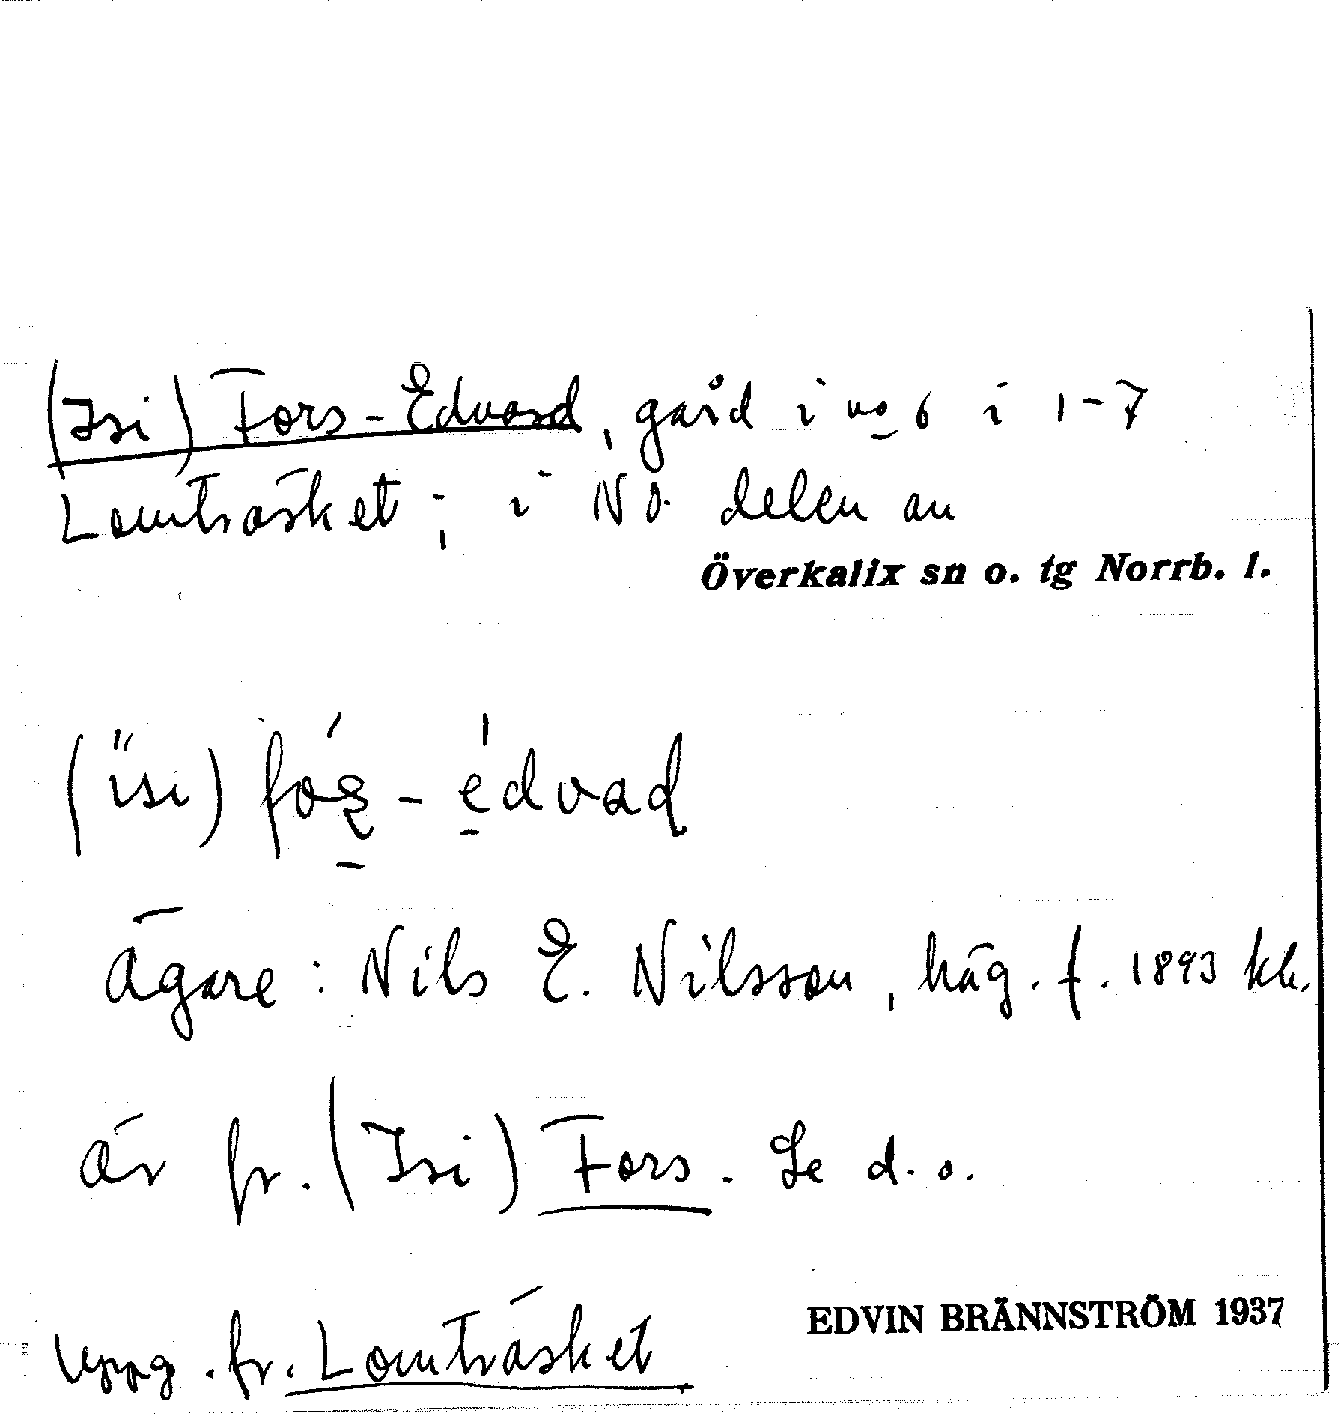 (Isi) Fors-Edvard, gård i no 6 i 1-7
Lomträsket; i NO. delen av
Överkalix sn o. tg Norrb. l.
(ïsi) fó -édvad
Ägare: Nils E. Nilsson, häg. f. 1893
är fr. (Isi) Fors. Se d.o.
Uppg. fr. Lomträsket
EDVIN BRÄNNSTRÖM 1937